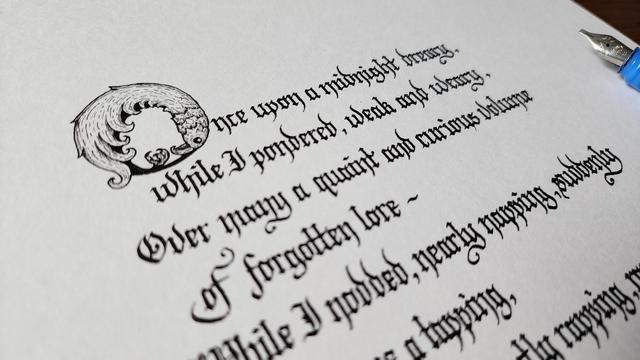 Once upon a midnight dreary,
while I pondered, weak and weary,
Over many a quaint and curious volume
of forgotten lore ~
While I nodded, nearly napping, suddenly
a tapping,
rapping,